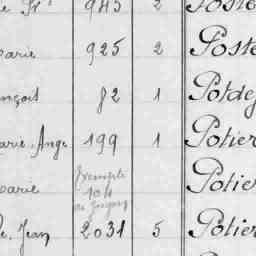 e St 943 2 Poste
arie 925 2 Poste
nçois 82 1 Potde
arie Ange 199 1 Potier
arie Exempte 104 Potier
de Jean 2031 5 Potier